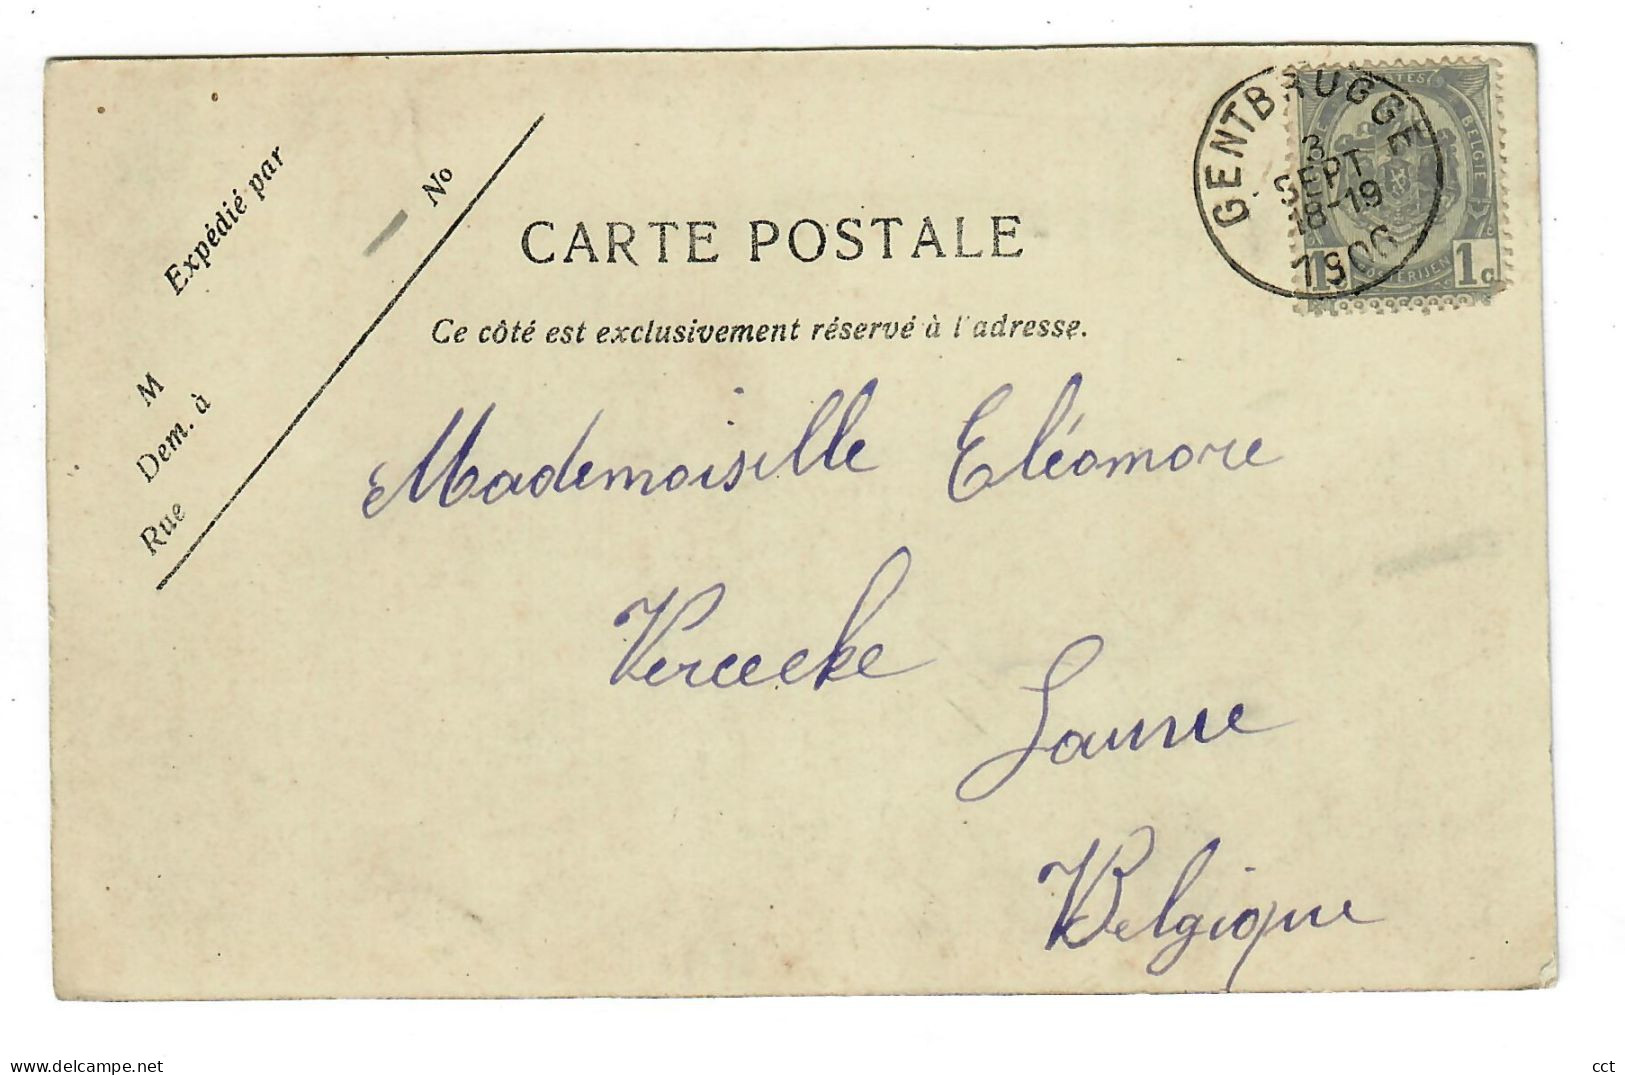 Expédié par
M
Dem. à
Rue
No
CARTE POSTALE
Ce côté est exclusivement réservé à l'adresse.
GENTBRUGGE
3
SEPT
18-19
BELGIE
OOSTERIJEN
1c
Mademoiselle Eléomore
Vercecke
Belgique
www.delcampe.net
cct